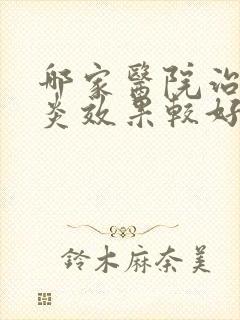 郍家醫院治
炎效果較好
鈴木麻奈美